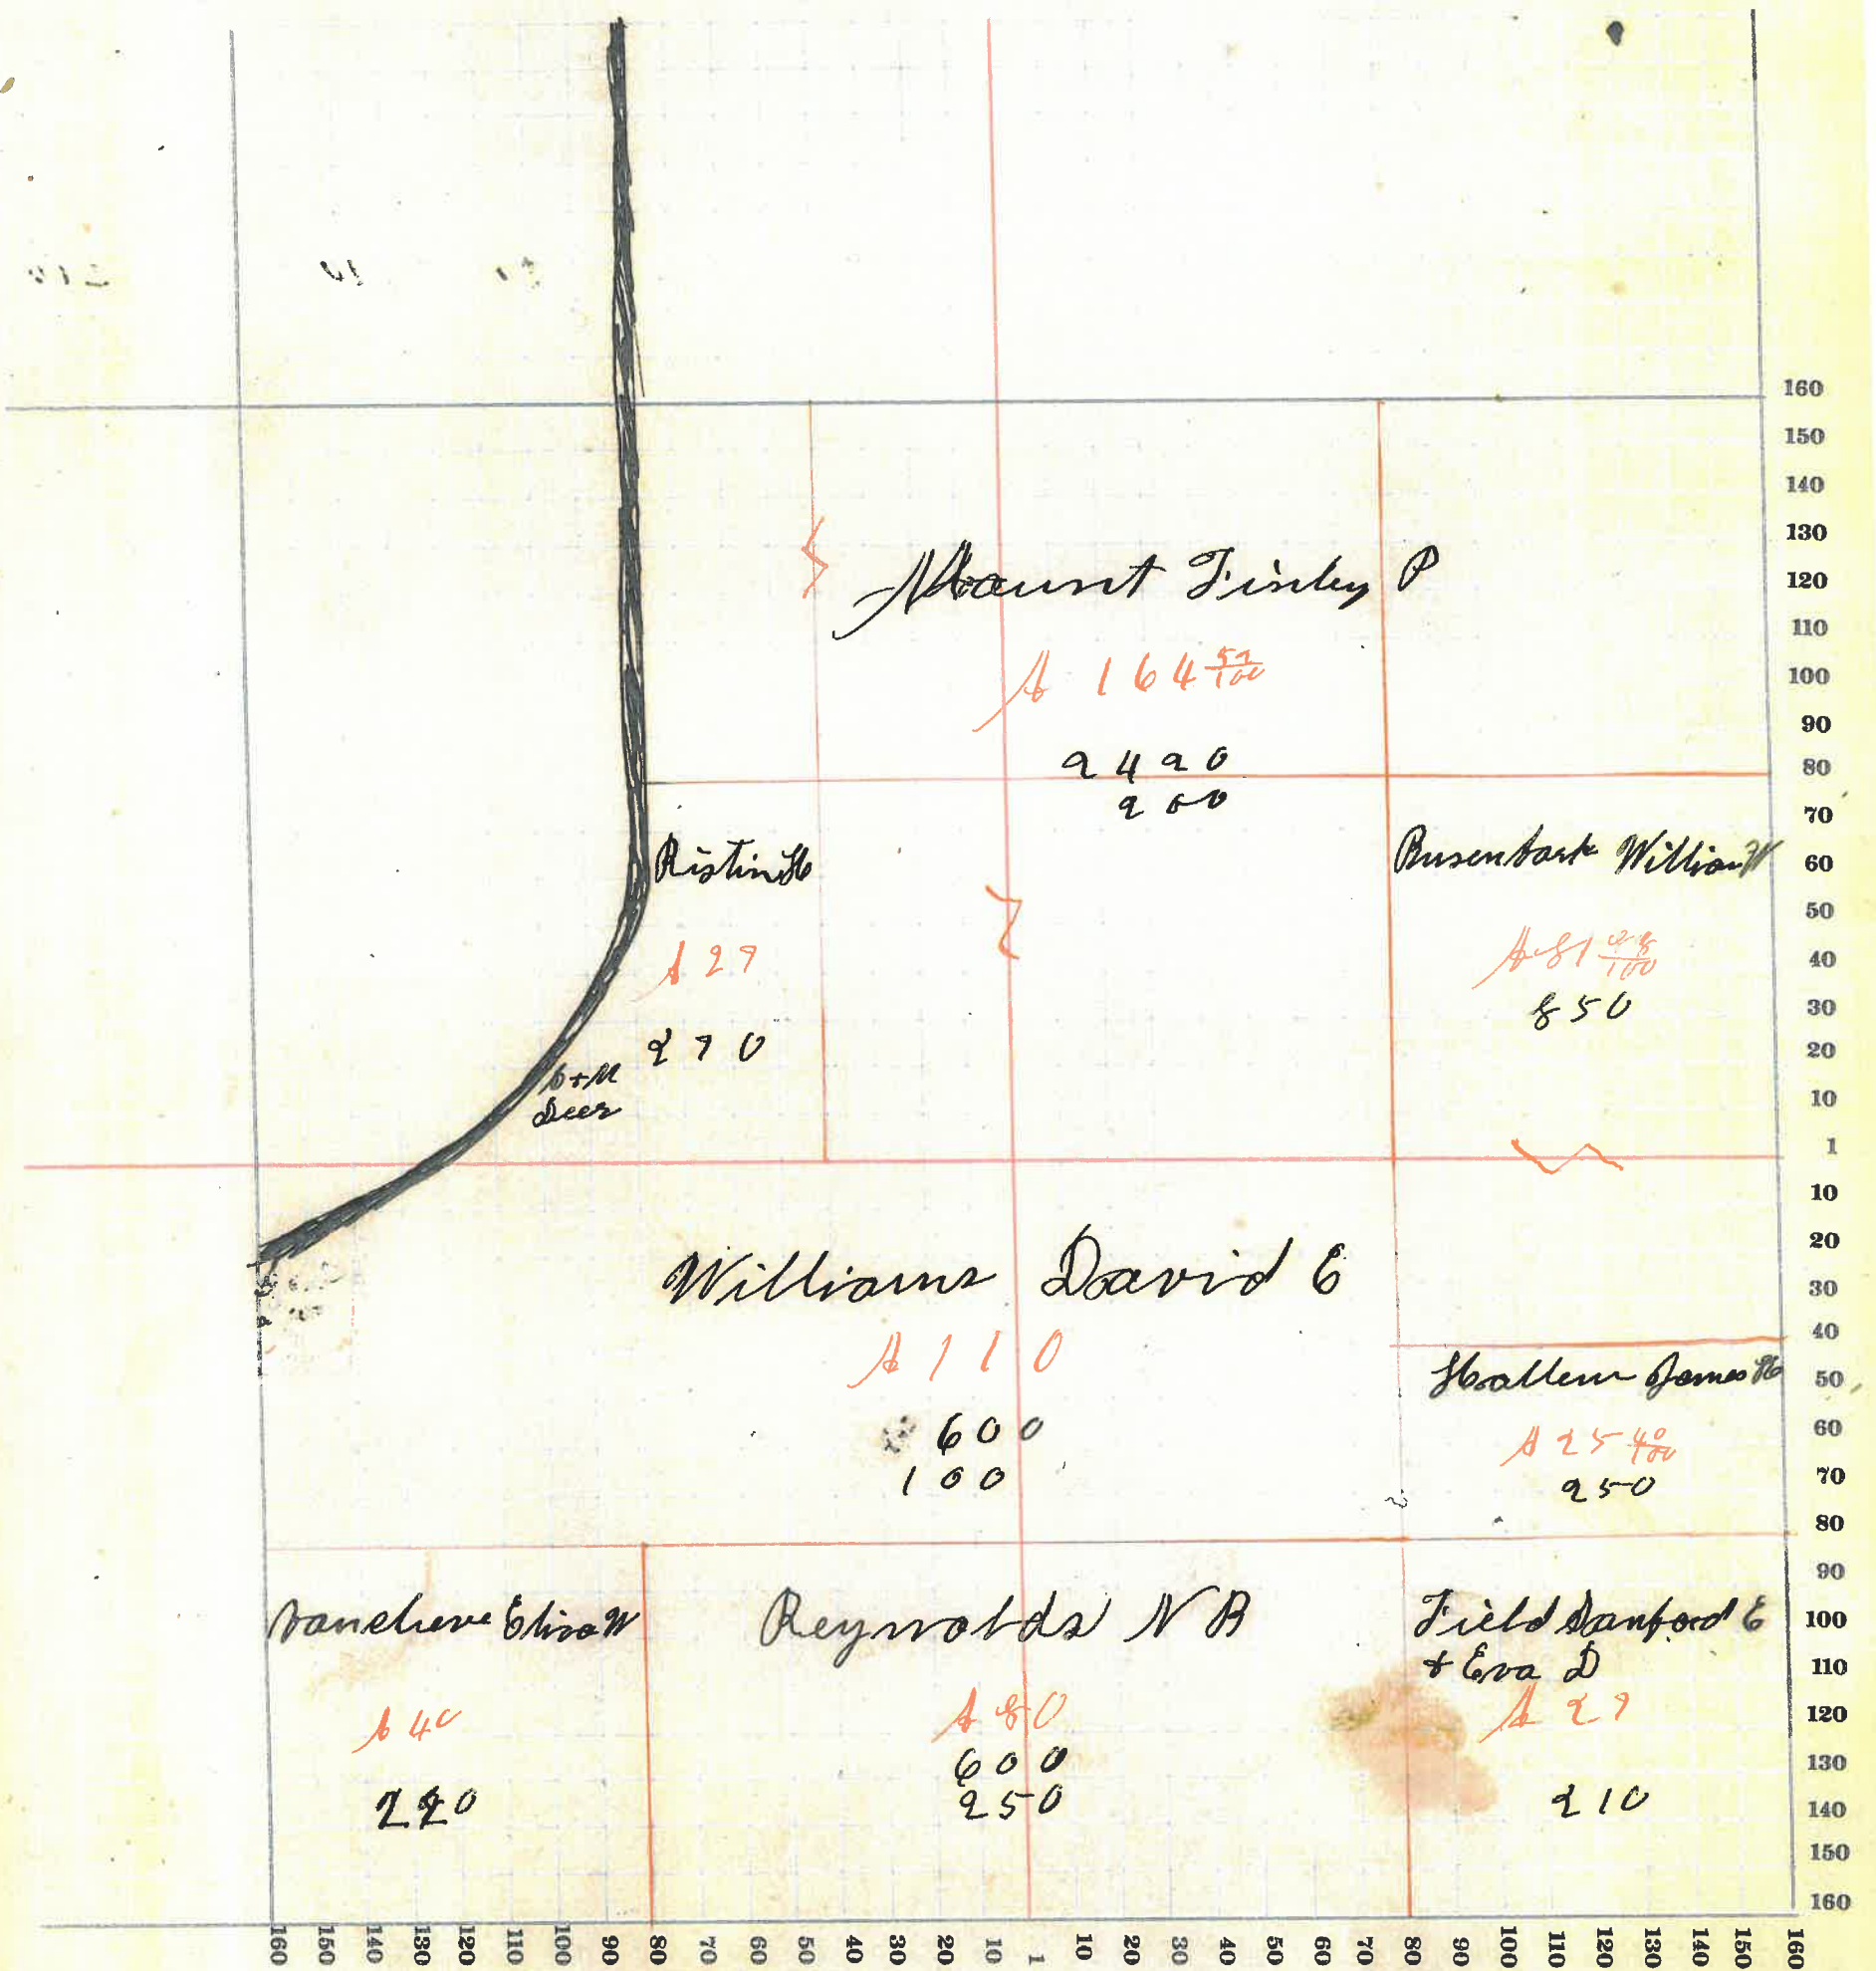 160
150
140
130
120
110
100
90
80
70
60
50
40
30
20
10
1
10
20
30
40
50
60
70
80
90
100
110
120
130
140
150
160
Mount Finley P
A 164 52/100
2420
200
Ristin H
A 27
270
Busenbark William W
A 81 28/100
850
Williams David E
A 110
600
100
Hallem James H
A 25 40/100
250
Eliza W
A 40
220
Reynolds N B
A 80
600
250
Field Sanford E
+ Eva D
A 27
210
160 150 140 130 120 110 100 90 80 70 60 50 40 30 20 10 1 10 20 30 40 50 60 70 80 90 100 110 120 130 140 150 160